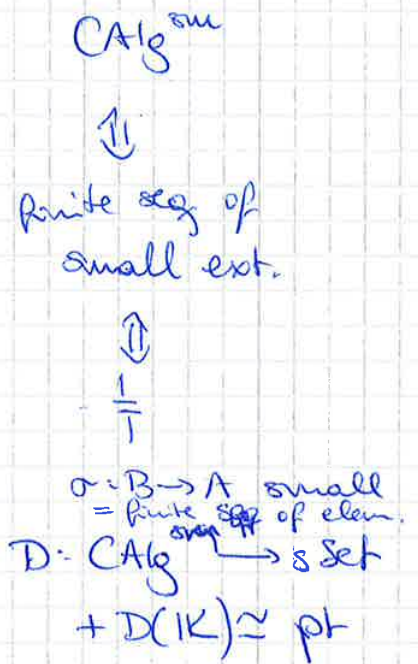 CAlg^sm
⇕
finite seq. of
small ext.
⇕
σ: B → A small
= finite seq of elem.
D: CAlg → sSet
+ D(𝕂) ≃ pt